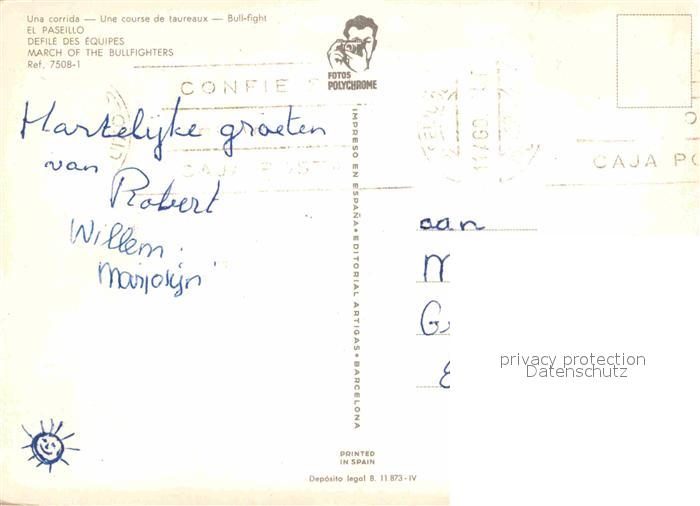 Una corrida — Une course de taureaux — Bull-fight
EL PASEILLO
DEFILÉ DES ÉQUIPES
MARCH OF THE BULLFIGHTERS
Ref. 7508-1
FOTOS
POLYCHROME
CONFIE
CAJA POST
CAJA PO
Hartelijke groeten
van
Robert
Willem.
Marjolijn
IMPRESO EN ESPAÑA • EDITORIAL ARTIGAS • BARCELONA
aan
privacy protection
Datenschutz
PRINTED
IN SPAIN
Depósito legal B. 11.873-IV